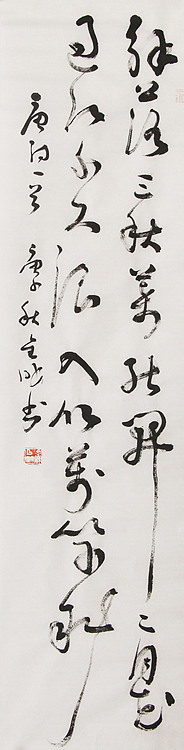 解落三秋葉能開二月花
過江千尺浪入竹萬竿斜
唐詩一首 庚子秋書